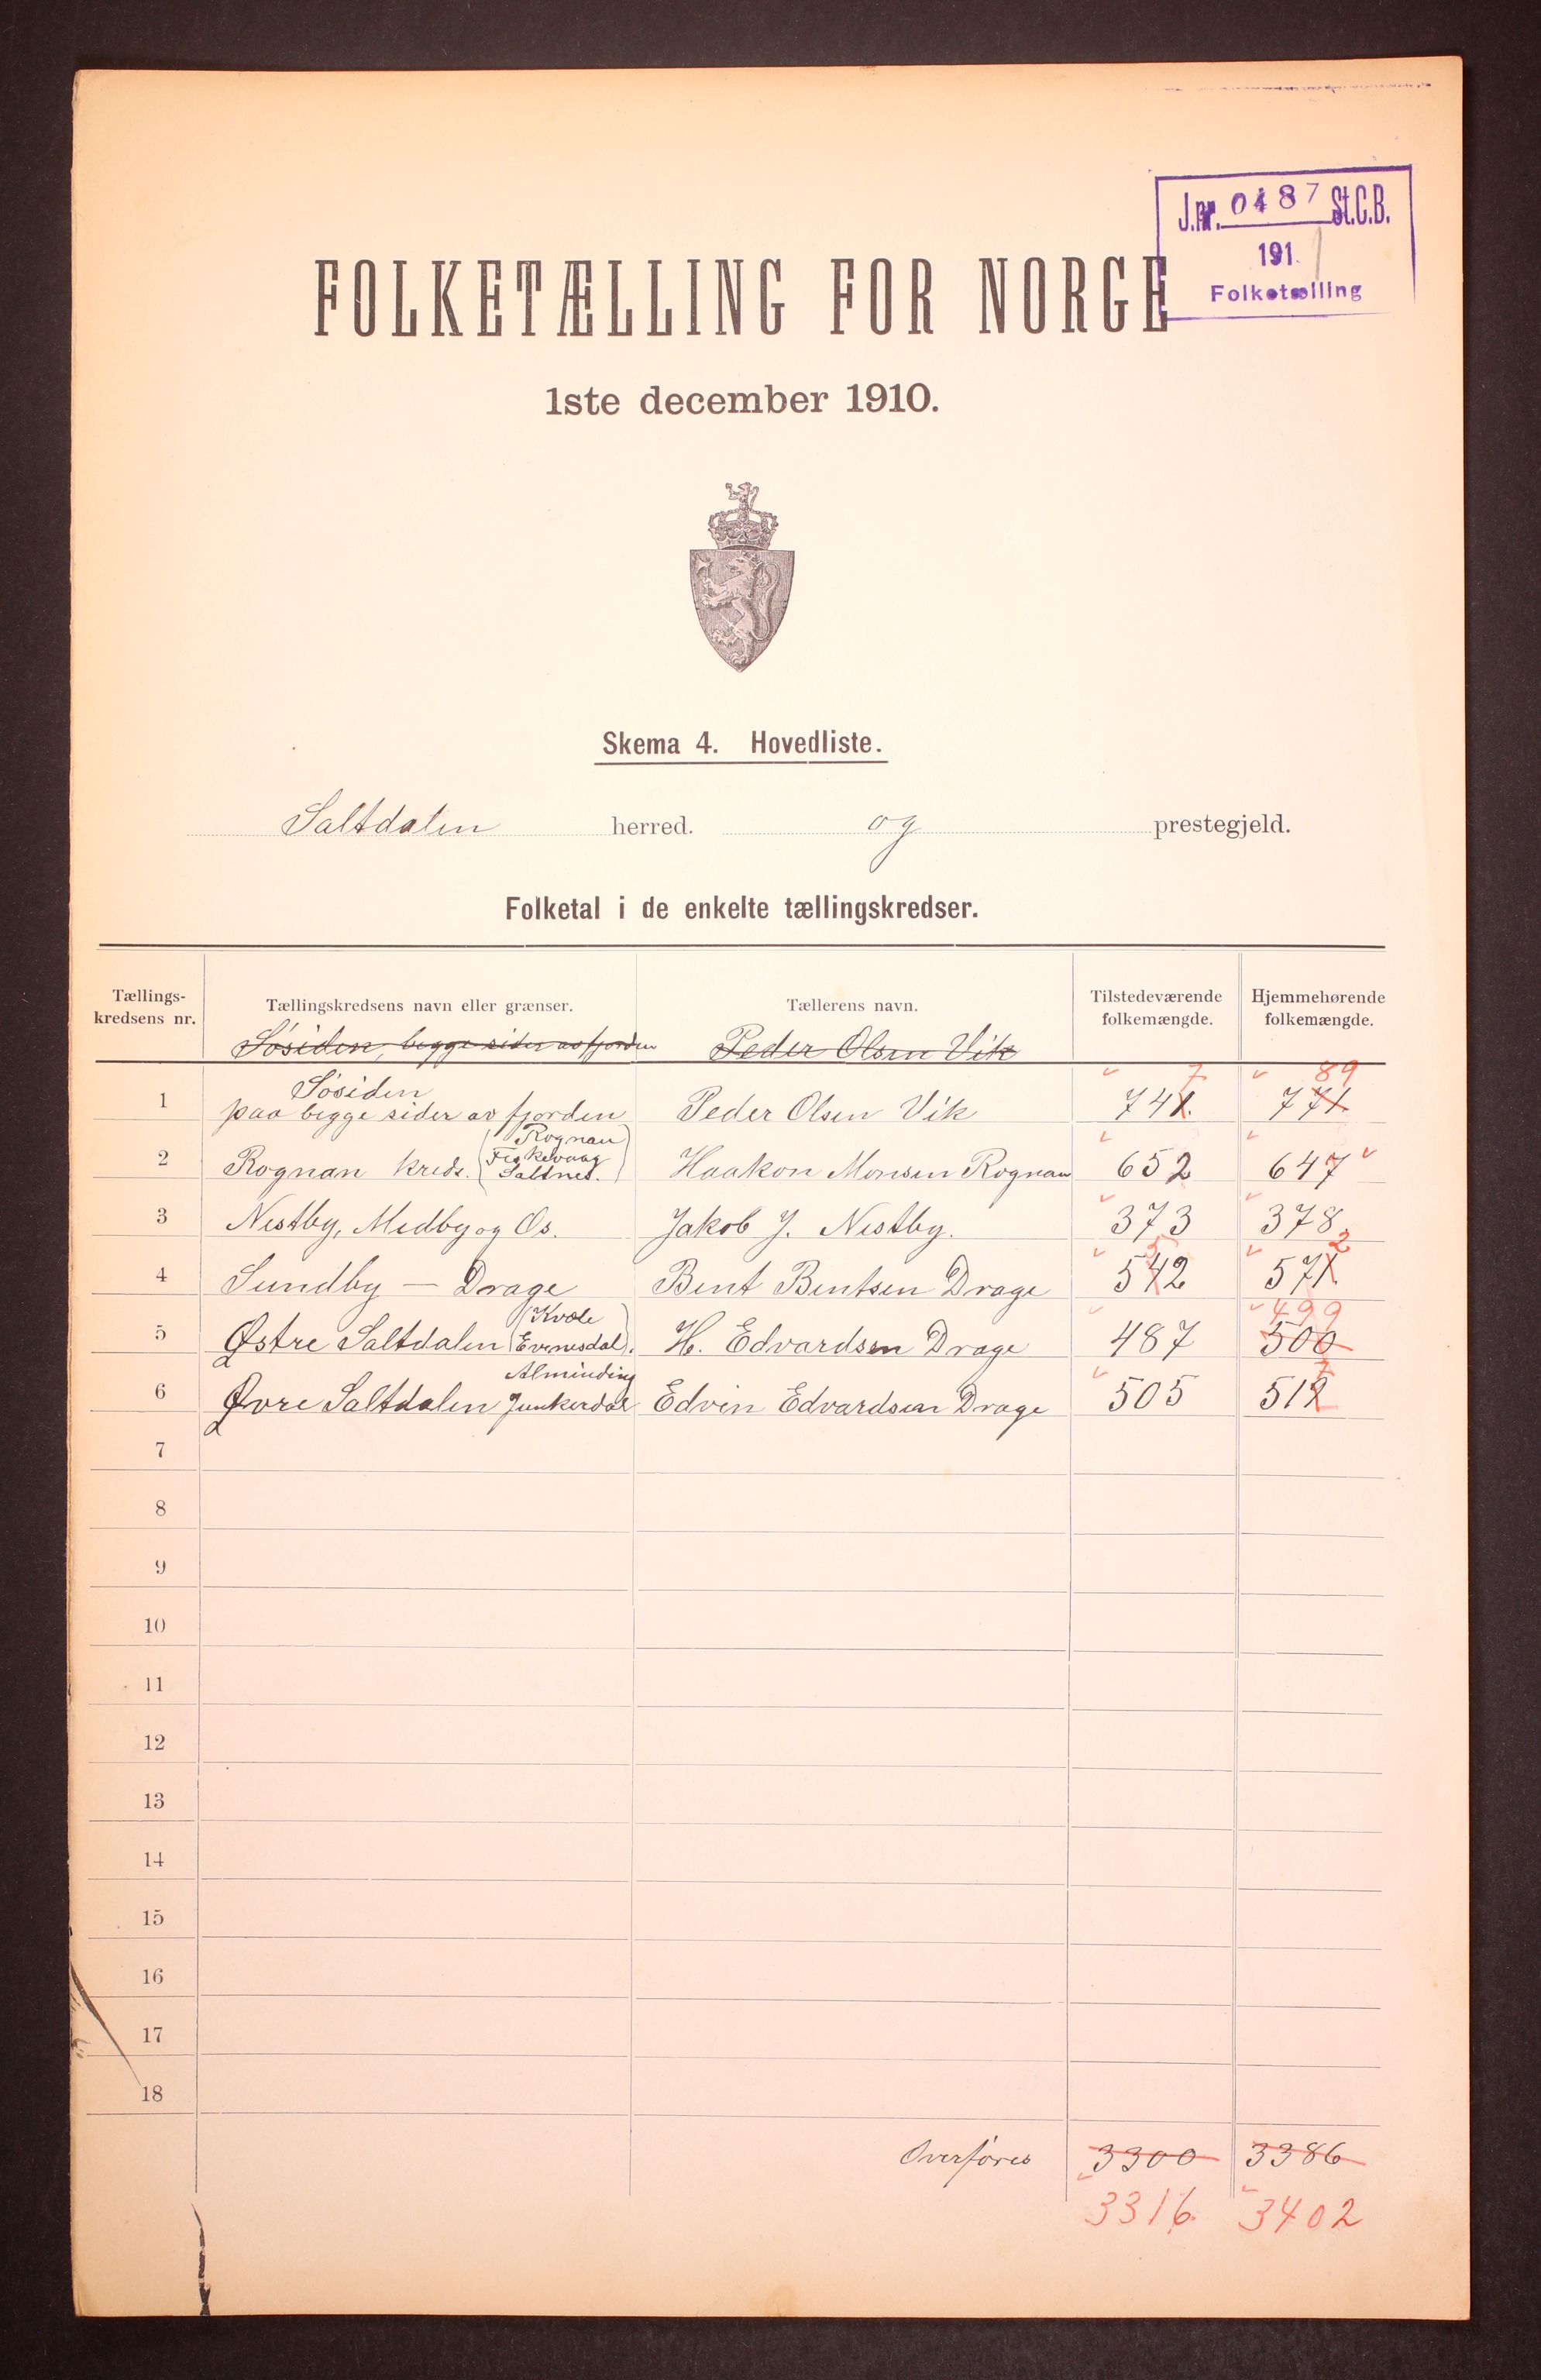 J.nr. 0487 St.C.B.
1911
Folketælling
FOLKETÆLLING FOR NORGE
1ste december 1910.
Skema 4. Hovedliste.
Saltdalen herred. og prestegjeld.
Folketal i de enkelte tællingskredser.
Tællings-
kredsens nr.
Tællingskredsens navn eller grænser.
Tællerens navn.
Tilstedeværende
folkemængde.
Hjemmehørende
folkemængde.
Søsiden, begge sider av fjorden Peder Olsen Vik
7 89
Søsiden
1 paa begge sider av fjorden Peder Olsen Vik 741. 771
Rognan
Fiskevaag
2 Rognan kreds. Saltnes. Haakon Monsen Rognan 652 647
3 Nestby, Medby og Os. Jakob J. Nestby. 373 378
5 2
4 Sundby — Drage Bent Bentsen Drage 542 571
Kvæle 499
5 Østre Saltdalen (Evenesdal). H. Edvardsen Drage 487 500
Alminding 7
6 Øvre Saltdalen Junkerdal Edvin Edvardsen Drage 505 519
7
8
9
10
11
12
13
14
15
16
17
18
Overføres 3300 3386
3316. 3402